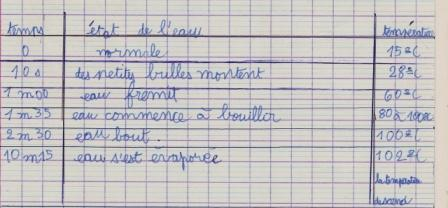 temps état de l'eau température
0 normale 15°C
10s des petits bulles montent 28°C
1 m00 eau frémit 60°C
1 m35 eau commence à bouillir 80 à 100°C
2 m 30 eau bout. 100°C
10 m15 eau s'est évaporée 102°C
la température
descend